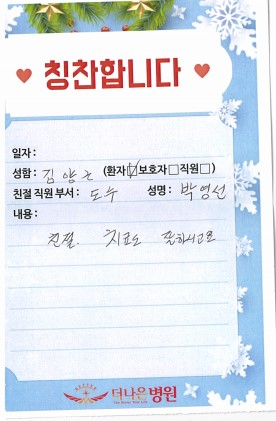 칭찬합니다
일자 :
성함 : 김양근 (환자☑보호자□직원□)
친절 직원 부서 : 도수 성명 : 박영선
내용 :
친절. 치료도 잘하시고요
더나은병원